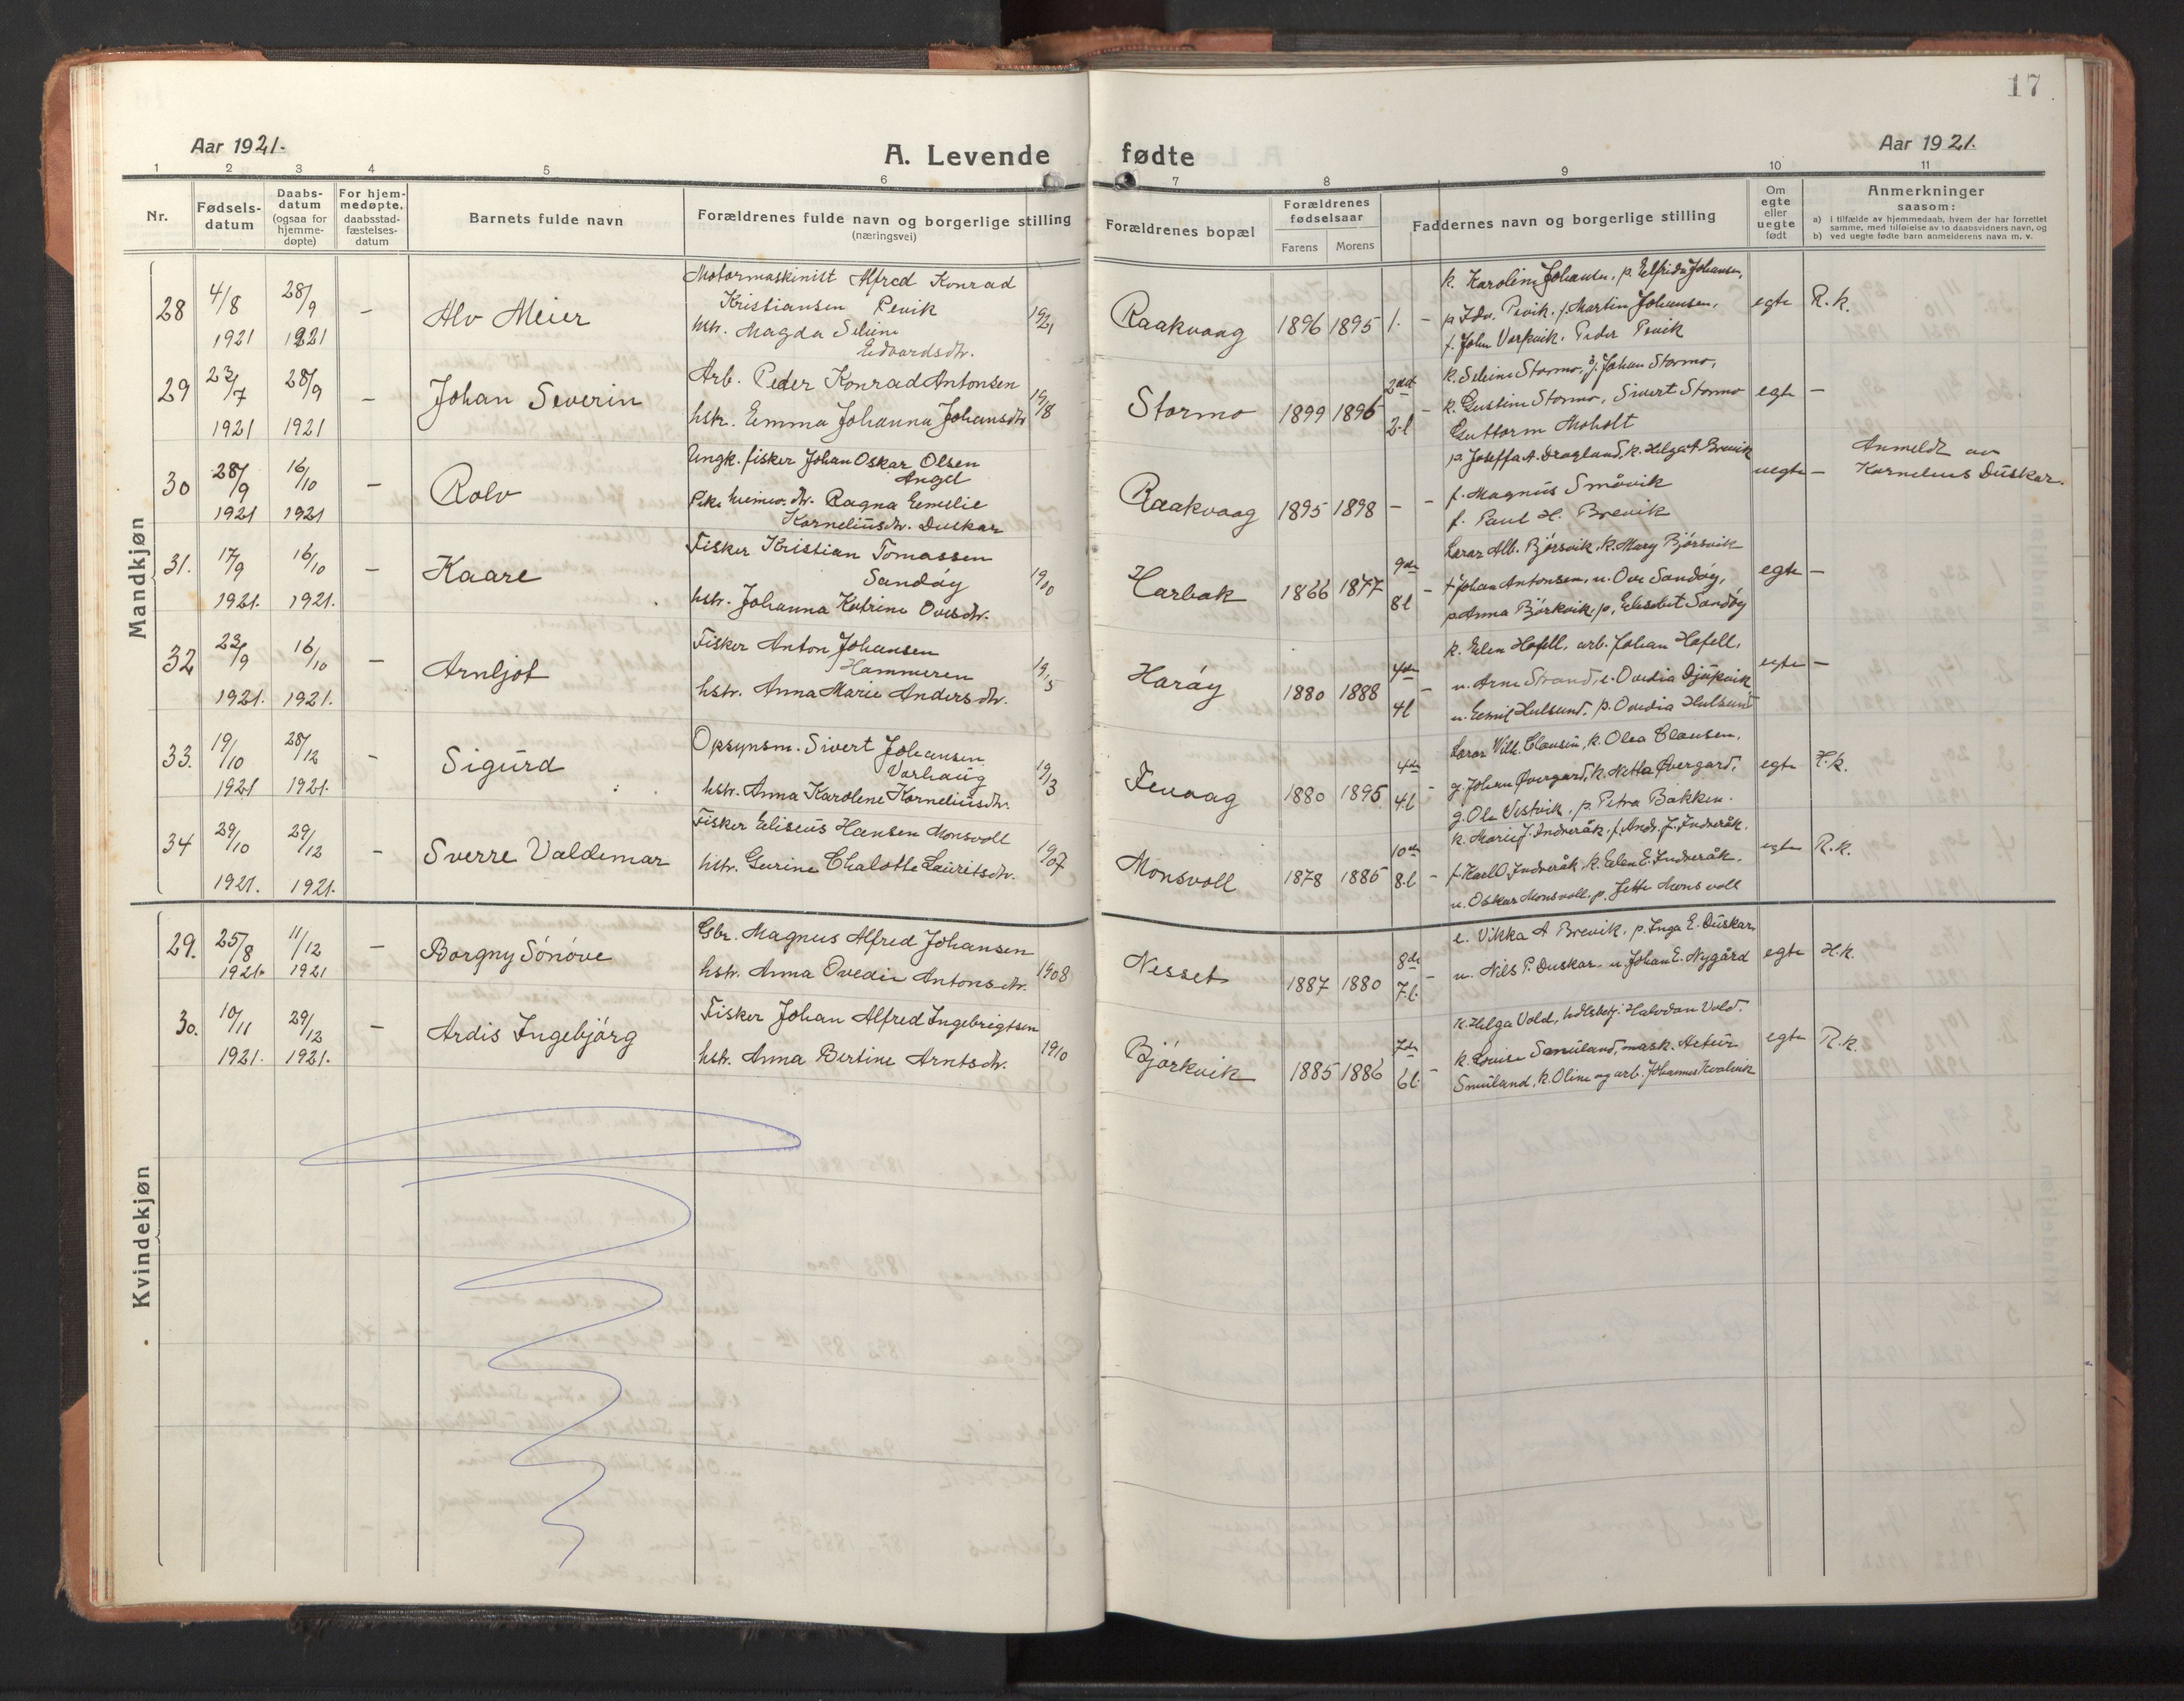 17
Aar 1921.
A. Levende fødte
Aar 1921.
1 2 3 4 5 6 7 8 9 10 11
Nr.
Fødsels-
datum
Daabs-
datum
(ogsaa for
hjemme-
døpte)
For hjem-
medøpte,
daabsstad-
fæstelses-
datum
Barnets fulde navn
Forældrenes fulde navn og borgerlige stilling
(næringsvei)
Forældrenes bopæl
Forældrenes
fødselsaar
Farens Morens
Faddernes navn og borgerlige stilling
Om
egte
eller
uegte
født
Anmerkninger
saasom:
a) i tilfælde av hjemmedaab, hvem der har forrettet
samme, med tilføielse av to daabsvidners navn, og
b) ved uegte fødte barn anmelderens navn m. v.
Mandkjøn
28 4/8 1921 28/9 1921 – Alv Meier
Motormaskinist Alfred Konrad
Kristiansen Revik
hstr. Magda Seline
Edvardsdtr.
19/21
Raakvaag 1896 1895 1. –
k. Karoline Johansen, p. Elfrida Johansen,
f. Martin Johansen,
f. John Peder
egte R.k.
29 23/7 1921 28/9 1921 – Johan Severin
Arb. Peder Konrad Antonsen
hstr. Emma Johanna Johansdtr
19/18
Stormo 1899 1896 2det 2.l –
k. Seline Stormo, Johan Stormo,
k. Gustine Stormo, Sivert Stormo
Guttorm Moholt
egte –
30 28/9 1921 16/10 1921 – Rolv
Ungk. fisker Johan Oskar Olsen
Angel
Pike Ragna Emelie
Korneliusdtr. Duskar
Raakvaag 1895 1898 – –
p. Joseffa A. Dragland, k. Helga A Brevik
f. Magnus Småvik
f. Paul H. Brevik
uegte –
Anmeldt av
Kornelius Duskar.
31. 17/9 1921. 16/10 1921. – Kaare
Fisker Kristian Tomassen
Sandøy
hstr. Johanna Katrine Ovesdtr.
19/10
Harbak 1866 1877 9de 8l –
Lærer Alb. Bjørsvik, k. Mary Bjørsvik
f Johan Antonsen, u. Ove Sandøy,
p. Anna Bjørkvik, p. Elisabet Sandøy
egte –
32 23/9 1921. 16/10 1921. – Arnljot
Fisker Anton Johansen
Hammeren
hstr. Anna Marie Andersdtr.
19/15
Harøy 1880 1888 4de 4l –
k. Elen Hofell, arb. Johan Hofell,
u. Arne Strand, e. Ovedia Djupvik
u. Emil Hulsund, p. Ovedia Hulsund
egte –
33. 19/10 1921 28/12 1921. – Sigurd
Opsynsm. Sivert Johansen
Varhaug
hstr. Anna Karolene Korneliusdtr.
19/13
Fevaag 1880 1895 4de 4l –
Lærer Vilh. Clausen, k. Olea Clausen,
g. Johan Øvergard, k. Netta Øvergard,
g. Ole Vestvik, p. Petra Bakken.
egte H.k.
34 29/10 1921. 29/12 1921. – Sverre Valdemar
Fisker Eliseus Hansen Monsvoll
hstr. Gurine Chalotte Lauritsdtr.
19/07
Monsvoll 1878 1886 10de 8.l –
k. Marie J. Indreråk, f. Andr. J. Indreråk,
f. Karl O. Indreråk, k. Elen E. Indreråk,
u. Oskar Monsvoll, p. Jette Monsvoll
egte R.k.
Kvindekjøn
29. 25/8 1921. 11/12 1921 – Borgny Sønøve
Gbr. Magnus Alfred Johansen
hstr. Anna Ovedie Antonsdtr.
1908
Nesset 1887 1880 8de 7.l. –
e. Vikka A Brevik, p. Inga E. Duskar,
u. Nils P. Duskar, u. Johan E. Nygård
egte H.k.
30. 10/11 1921. 29/12 1921. – Ardis Ingebjørg
Fisker Johan Alfred Ingebrigtsen
hstr. Anna Bertine Arntsdtr.
1910
Bjørkvik 1885 1886 7de 6l. –
k. Helga Vold, Halvdan Vold.
k. Louise Småland, mask. Artur
Småland, k. Oline og arb. Johannes Kvalvik
egte R.k.